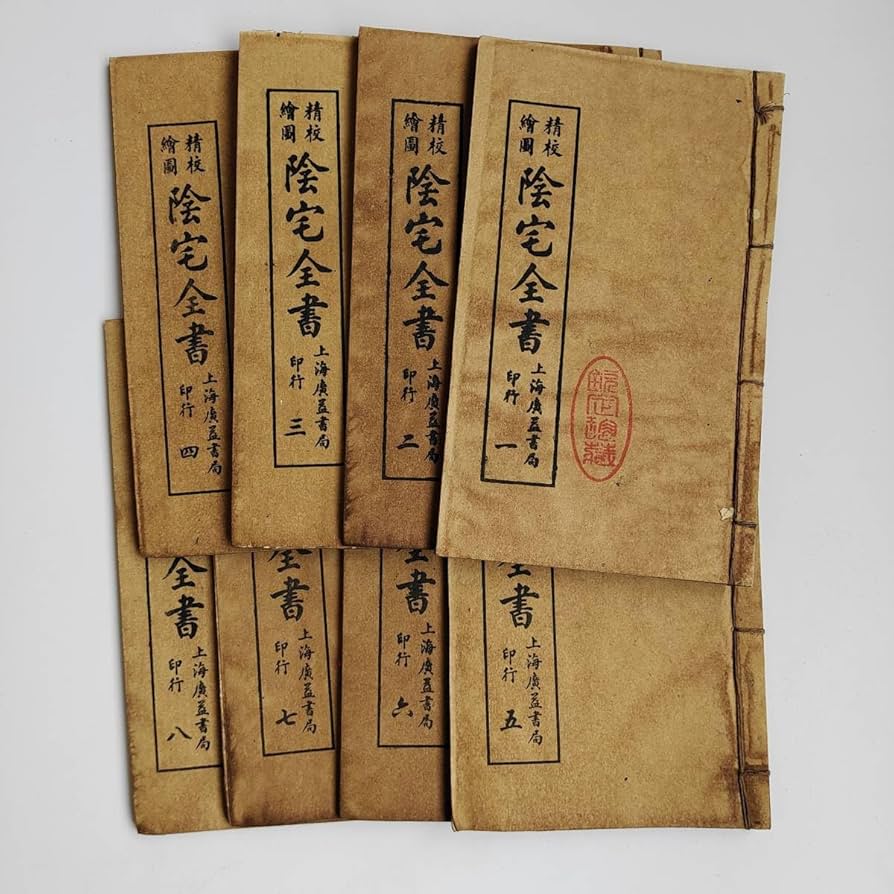 精校
繪圖
陰宅全書
上海廣益書局
印行
一
精校
繪圖
陰宅全書
上海廣益書局
印行
二
精校
繪圖
陰宅全書
上海廣益書局
印行
三
精校
繪圖
陰宅全書
上海廣益書局
印行
四
全書
上海廣益書局
印行
五
全書
上海廣益書局
印行
六
全書
上海廣益書局
印行
七
全書
上海廣益書局
印行
八